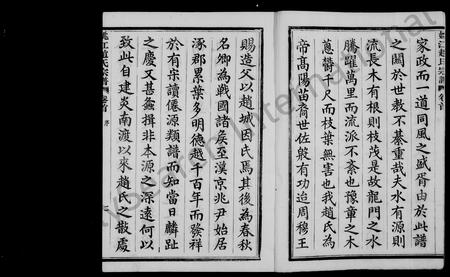 家政而一道同風之盛胥由於此譜
之關於世教不綦重哉夫水有源則
流長木有根則枝茂是故龍門之水
騰躍萬里而流派不紊也豫章之木
蔥鬱千尺而枝葉無害也我趙氏為
帝高陽苗裔世佐殷有功造周穆王
賜造父以趙城因氏焉其後為春秋
名卿為戰國諸矦至漢京兆尹始居
涿郡累葉多明德越千百年而發祥
於有宋讀僊源類譜而知當日麟趾
之慶又甚龠揖非本源之深遠何以
致此自建炎南渡以來趙氏之散處
江趙氏宗譜 卷首 序